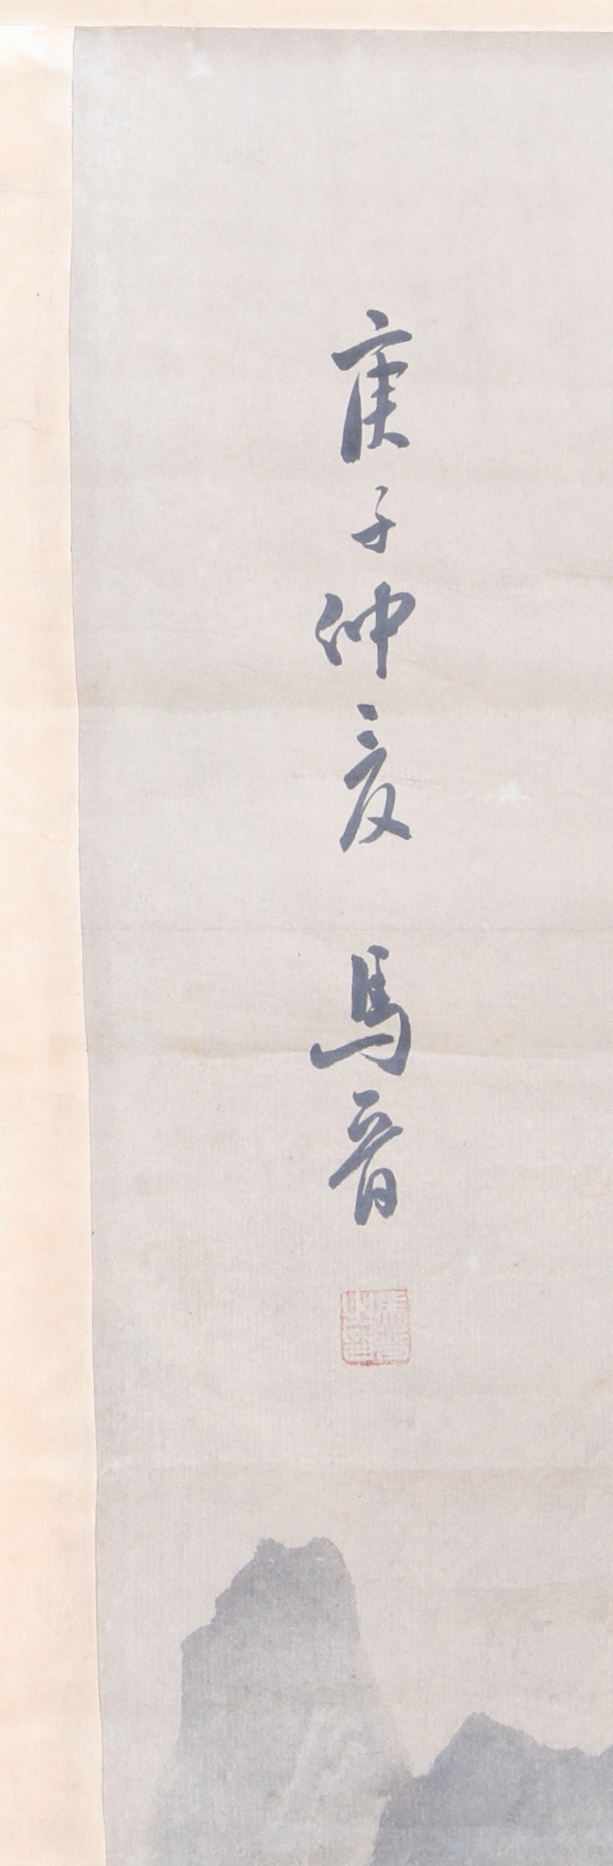 庚子仲夏 馬晉
馬晉之印